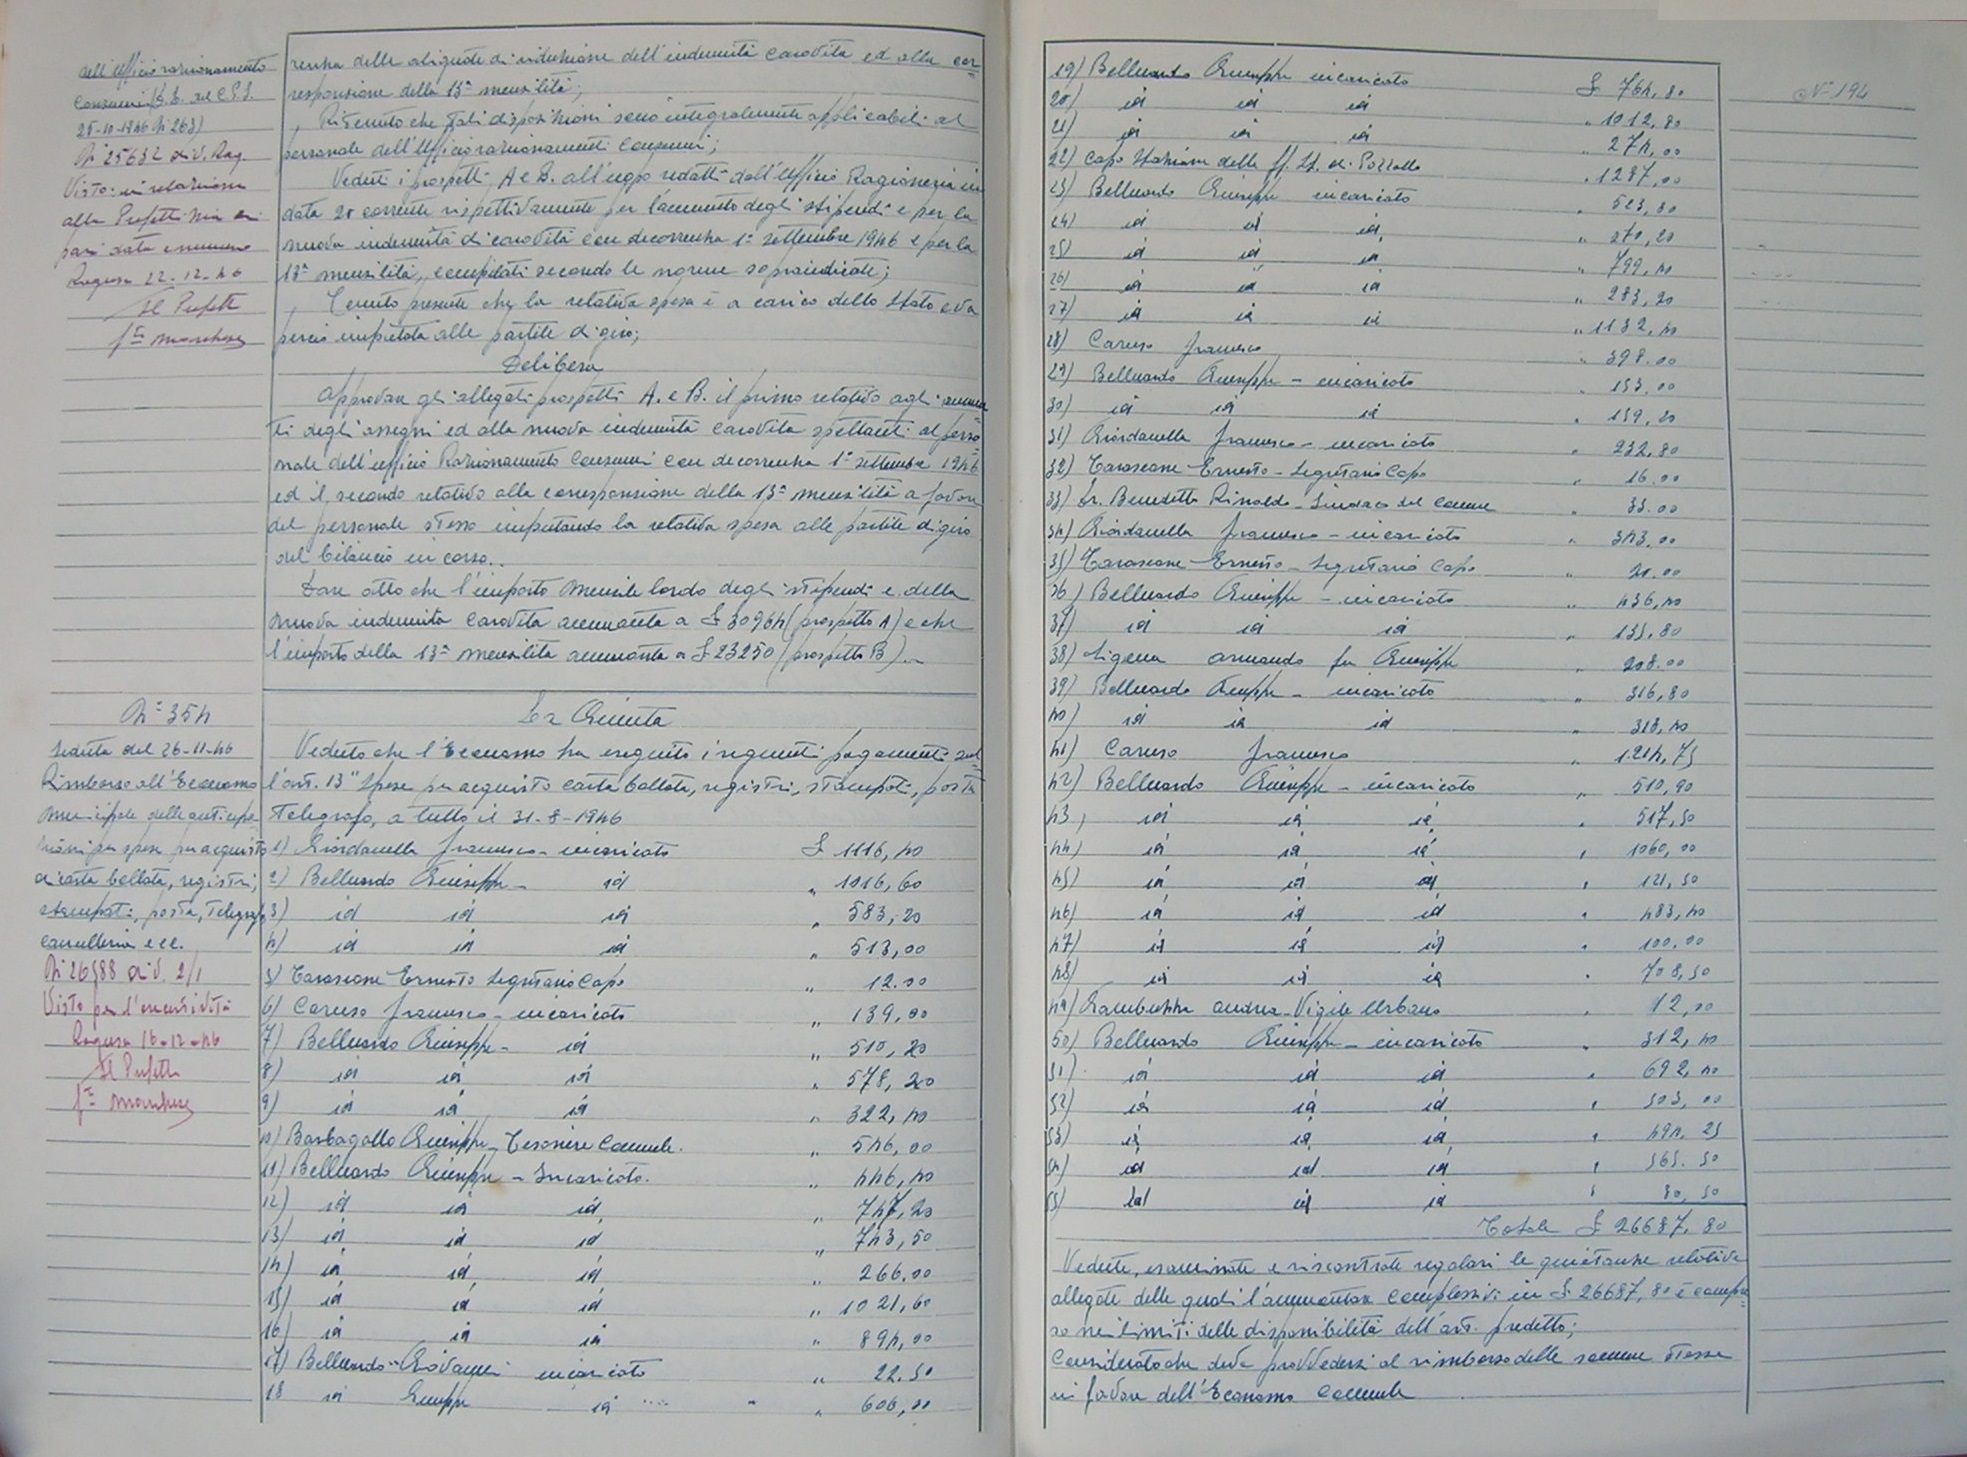 dell'Ufficio razionamento
consumi
25-10-1946 N 263)
N 25632 div. Rag.
Visto: in relazione
alla Prefettizia di
pari data e numero
Ragusa 22-12-46
Il Prefetto
renza delle aliquote di riduzione dell'indennità carovita ed alla cor=
responsione della 13ª mensilità;
Ritenuto che tali disposizioni sono integralmente applicabili al
personale dell'Ufficio razionamenti consumi;
Veduti i prospetti A e B. all'uopo redatti dall'Ufficio Ragioneria in
data 20 corrente rispettivamente per l'aumento degli stipendi e per la
nuova indennità di carovita con decorrenza 1º settembre 1946 e per la
13ª mensilità, compilati secondo le norme sopraindicate;
Tenuto presente che la relativa spesa è a carico dello Stato e va
perciò imputata alle partite di giro;
Delibera
Approvare gli allegati prospetti A. e B. il primo relativo agli aumen
ti degli assegni ed alla nuova indennità carovita spettanti al perso
nale dell'ufficio Razionamento Consumi con decorrenza 1º settembre 1946
ed il secondo relativo alla corresponsione della 13ª mensilità a favore
del personale stesso imputando la relativa spesa alle partite di giro
del bilancio in corso..
Dare atto che l'importo mensile lordo degli stipendi e della
nuova indennità carovita ammonta a £ 30964 (prospetto A) e che
l'importo della 13ª mensilità ammonta a £ 23250 (prospetto B).
Nº 354
Seduta del 26-11-46
Rimborso all'Economo
Municipale delle anticipa-
zioni per spese per acquisto
di carta bollata, registri,
stampati, posta, telegrafo,
cancelleria ecc.
N 26588 div. 2/1
Visto per l'esecutività
Ragusa 16-12-46
Il Prefetto
La Giunta
Veduto che l'Economo ha eseguito i seguenti pagamenti sul=
l'art. 13 "Spese per acquisto carta bollata, registri, stampati, posta
Telegrafo, a tutto il 31-8-1946
1) Giordanella Francesco - incaricato £ 1116,40
2) Belluardo Giuseppe - id " 1016,60
3) id id id " 583,20
4) id id id " 513,00
5) Tarascone Ernesto Segretario Capo " 12.00
6) Caruso Francesco - incaricato " 139,00
7) Belluardo Giuseppe - id " 510,20
8) id id id " 578,20
9) id id id " 322,40
10) Barbagallo Giuseppe - Tesoriere Comunale. " 546,00
11) Belluardo Giuseppe - Incaricato. " 446,40
12) id id id " 747,20
13) id id id " 743,50
14) id id id " 266.00
15) id id id " 1021,60
16) id id id " 894,00
17) Belluardo Giovanni incaricato " 22.50
18 id Giuseppe id " 606,00
Nº 194
19) Belluardo Giuseppe incaricato £ 764,80
20) id id id " 1012,80
21) id id id " 274,00
22) Capo Stazione delle ff. SS. di Pozzallo " 1287,00
23) Belluardo Giuseppe incaricato " 523,80
24) id id id " 270,20
25) id id id " 799,40
26) id id id " 283,20
27) id id id " 1132,40
28) Caruso Francesco " 398.00
29) Belluardo Giuseppe - incaricato " 153.00
30) id id id " 159,20
31) Giordanella Francesco - incaricato " 232,80
32) Tarascone Ernesto - Segretario Capo " 16.00
33) Dr. Benedetto Rinaldo - Sindaco del Comune " 35.00
34) Giordanella Francesco - incaricato " 343.00
35) Tarascone Ernesto - Segretario Capo " 20.00
36) Belluardo Giuseppe - incaricato " 436,40
37) id id id " 135,80
38) Ligena Armando fu Giuseppe " 208.00
39) Belluardo Giuseppe - incaricato " 316,80
40) id id id " 313,40
41) Caruso Francesco " 1.214,75
42) Belluardo Giuseppe - incaricato " 510,90
43) id id id " 517,50
44) id id id " 1060,00
45) id id id " 121,50
46) id id id " 483,40
47) id id id " 100.00
48) id id id " 708,50
49) Andrea - Vigile Urbano " 12,00
50) Belluardo Giuseppe - incaricato " 312,40
51) id id id " 692,40
52) id id id " 503,00
53) id id id " 494,25
54) id id id " 565.50
55) id id id " 80,50
Totale £ 26687,80
Vedute, esaminate e riscontrate regolari le quietanze relative
allegate delle quali l'ammontare complessivo in £ 26687,80 è compre=
so nei limiti delle disponibilità dell'art. predetto;
Considerato che deve provvedersi al rimborso delle somme stesse
in favore dell'Economo Comunale